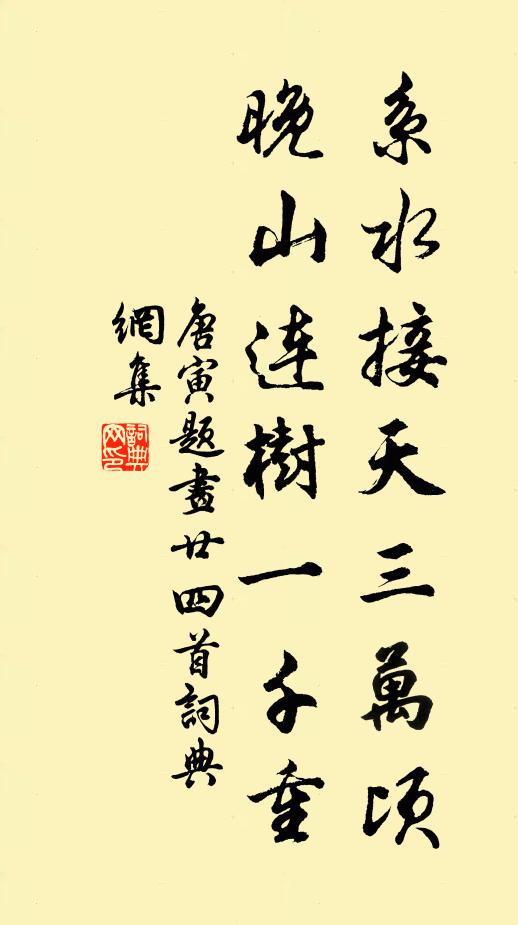 系水接天三萬頃
晚山連樹一千重
唐寅題畫廿四首詞典
網集
詞典网印